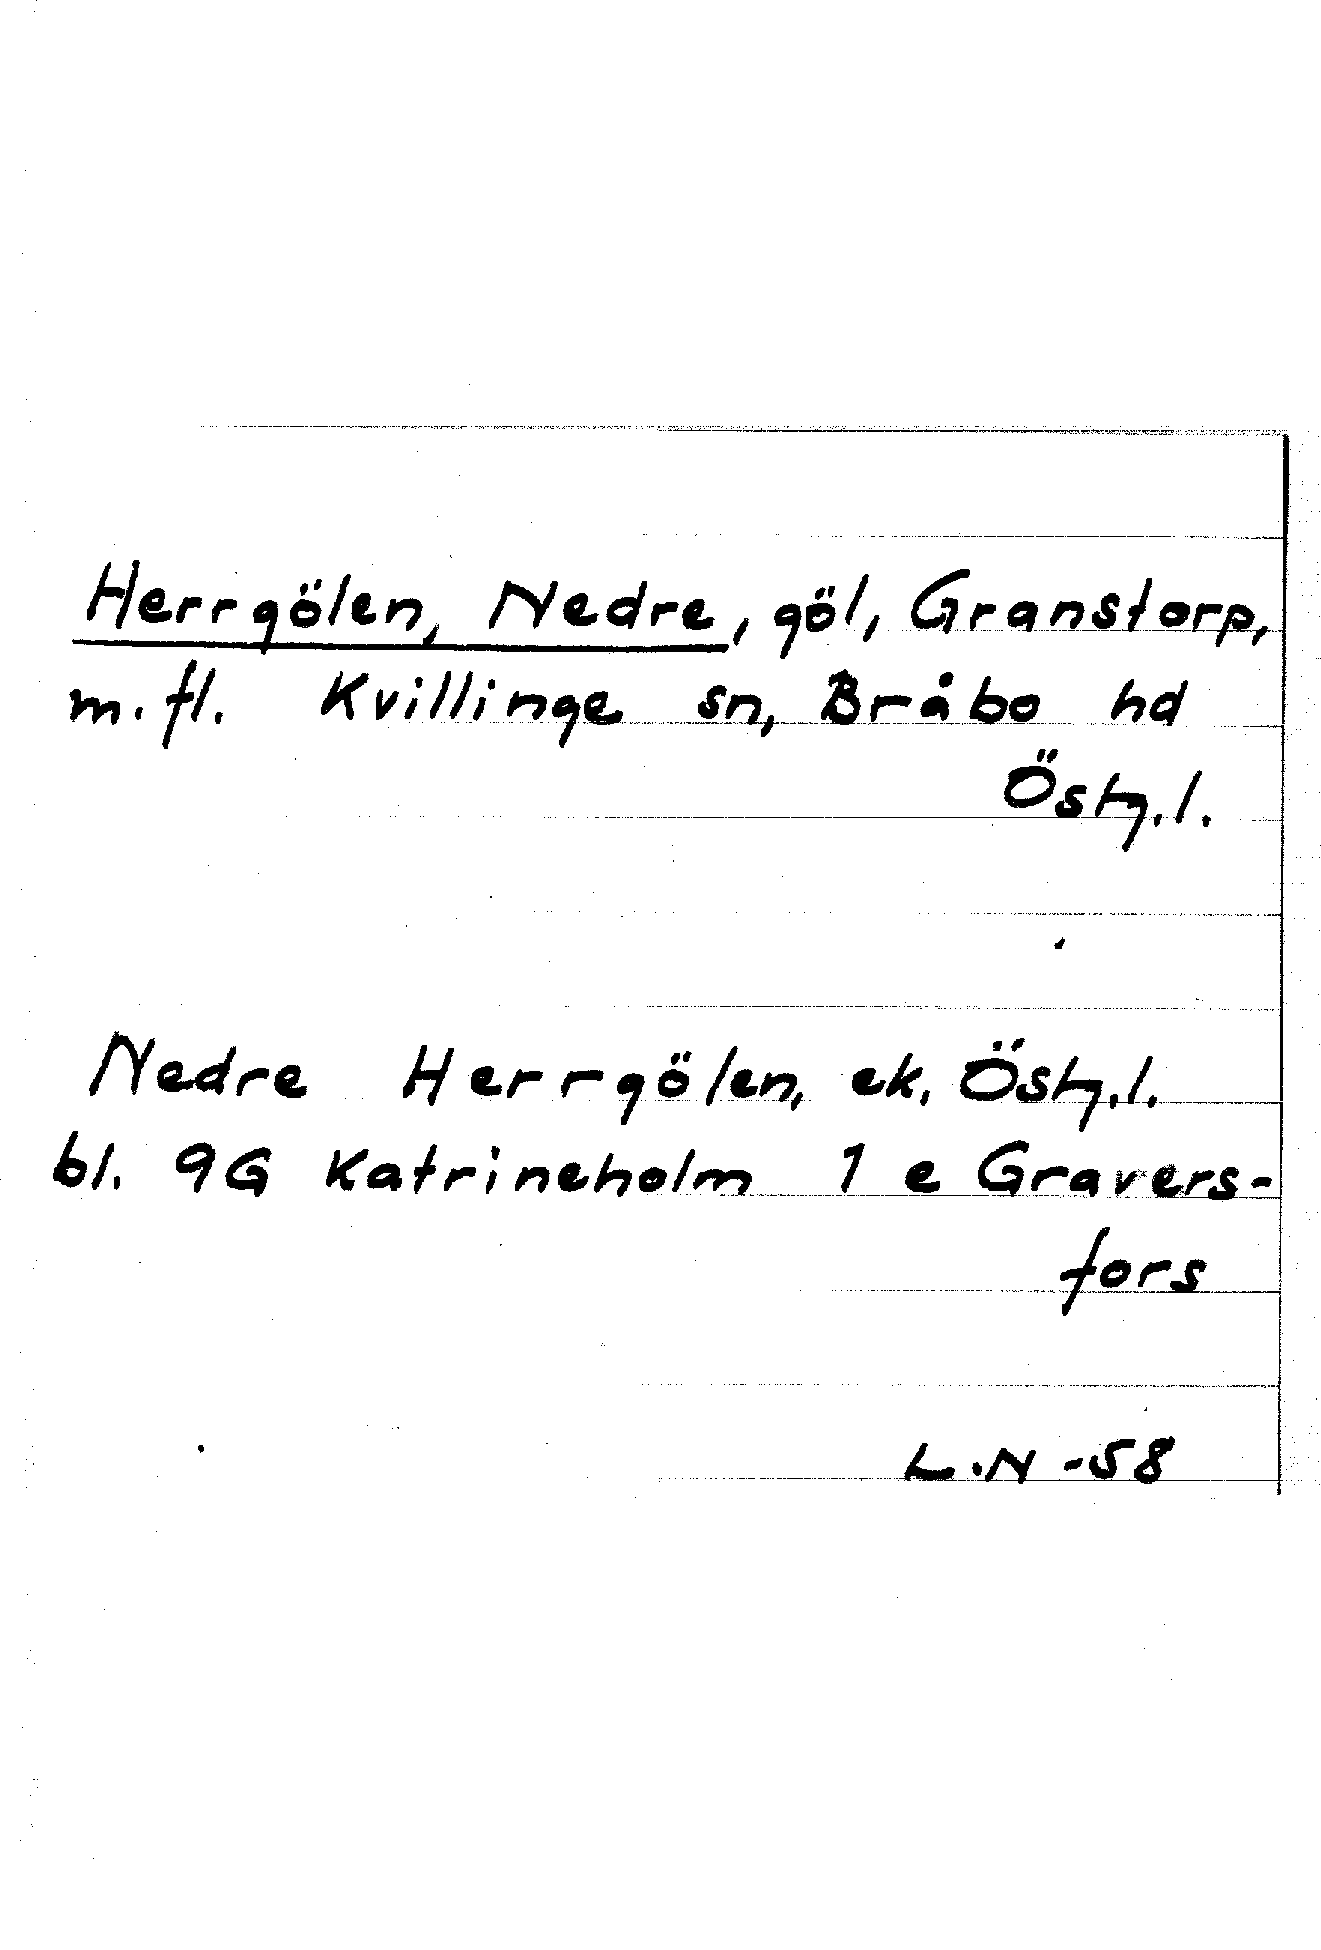 Herrgölen, Nedre, göl, Granstorp,
m.fl. Kvillinge sn, Bråbo hd
Östg.l.
Nedre Herrgölen, ek. Östg.l.
bl. 9G Katrineholm 1 e Gravers-
fors
L.N -58